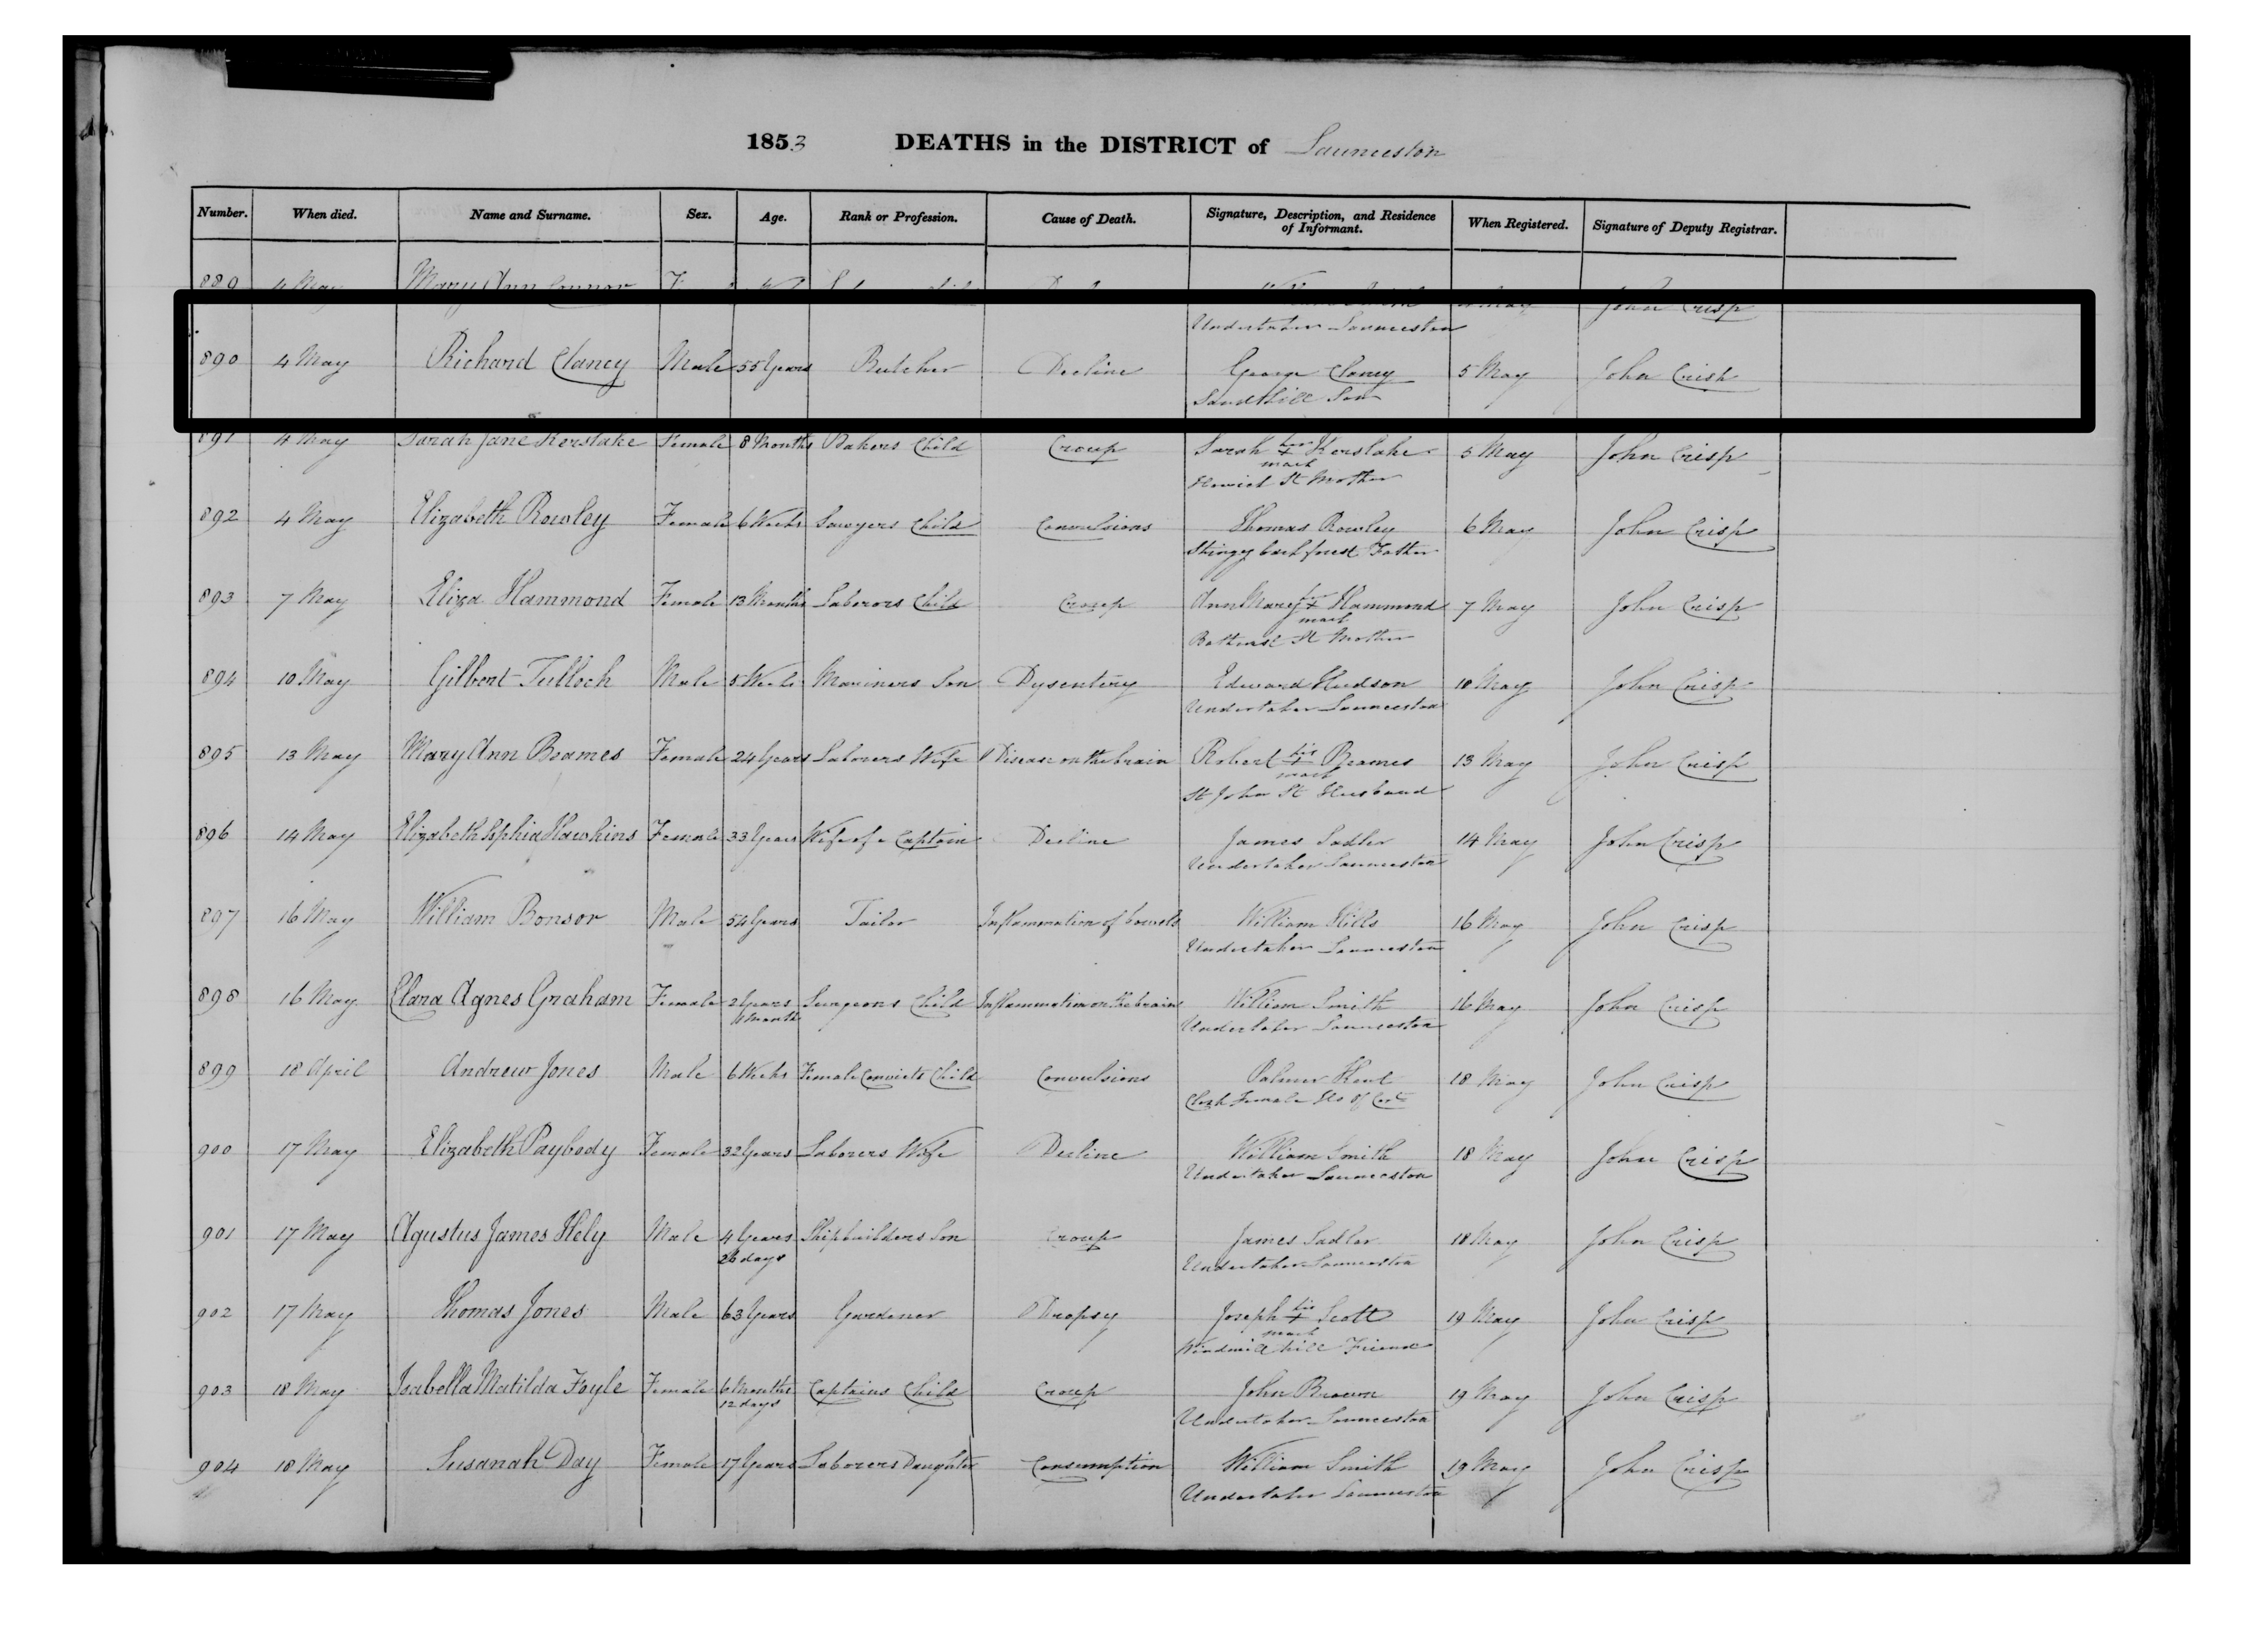 1853 DEATHS in the DISTRICT of Launceston
Number. When died. Name and Surname. Sex. Age. Rank or Profession. Cause of Death. Signature, Description, and Residence of Informant. When Registered. Signature of Deputy Registrar.
889 4 May Mary Ann Connor John Crisp
Undertaker Launceston
890 4 May Richard Clancy Male 55 Years Butcher Decline George Clancy 5 May John Crisp
Sandhill Son
891 4 May Sarah Jane Kerslake Female 8 Months Bakers Child Croup Sarah her + Kerslake 5 May John Crisp
mark
St Mother
892 4 May Elizabeth Rowley Female 6 Weeks Sawyers Child Convulsions Thomas Rowley 6 May John Crisp
Stringy bark forest Father
893 7 May Eliza Hammond Female 13 Months Laborors Child Croup Ann Mary her + Hammond 7 May John Crisp
mark
Bathurst St Mother
894 10 May Gilbert Tulloch Male 5 Weeks Mariners Son Dysentery Edward Hudson 10 May John Crisp
Undertaker Launceston
895 13 May Mary Ann Beames Female 24 Years Laborers Wife Disease on the brain Robert his + Beames 13 May John Crisp
mark
St John St Husband
896 14 May Elizabeth Sophia Hawkins Female 33 Years Wife of a Captain Decline James Sadler 14 May John Crisp
Undertaker Launceston
897 16 May William Bonsor Male 54 Years Tailor Inflammation of bowels William Hills 16 May John Crisp
Undertaker Launceston
898 16 May Clara Agnes Graham Female 2 Years Surgeons Child Inflammation on the brain William Smith 16 May John Crisp
11 Months Undertaker Launceston
899 18 April Andrew Jones Male 6 Weeks Female Convicts Child Convulsions Palmer Kent 18 May John Crisp
Clerk Female Ho of Cor
900 17 May Elizabeth Paybody Female 32 Years Laborers Wife Decline William Smith 18 May John Crisp
Undertaker Launceston
901 17 May Agustus James Hely Male 4 Years Shipbuilders Son Croup James Sadler 18 May John Crisp
26 days Undertaker Launceston
902 17 May Thomas Jones Male 63 Years Gardener Dropsy Joseph his + Scott 19 May John Crisp
mark
Windmill hill Friend
903 18 May Isabella Matilda Foyle Female 6 Months Captains Child Croup John Brown 19 May John Crisp
12 days Undertaker Launceston
904 18 May Susanah Day Female 17 Years Laborers Daughter Consumption William Smith 19 May John Crisp
Undertaker Launceston